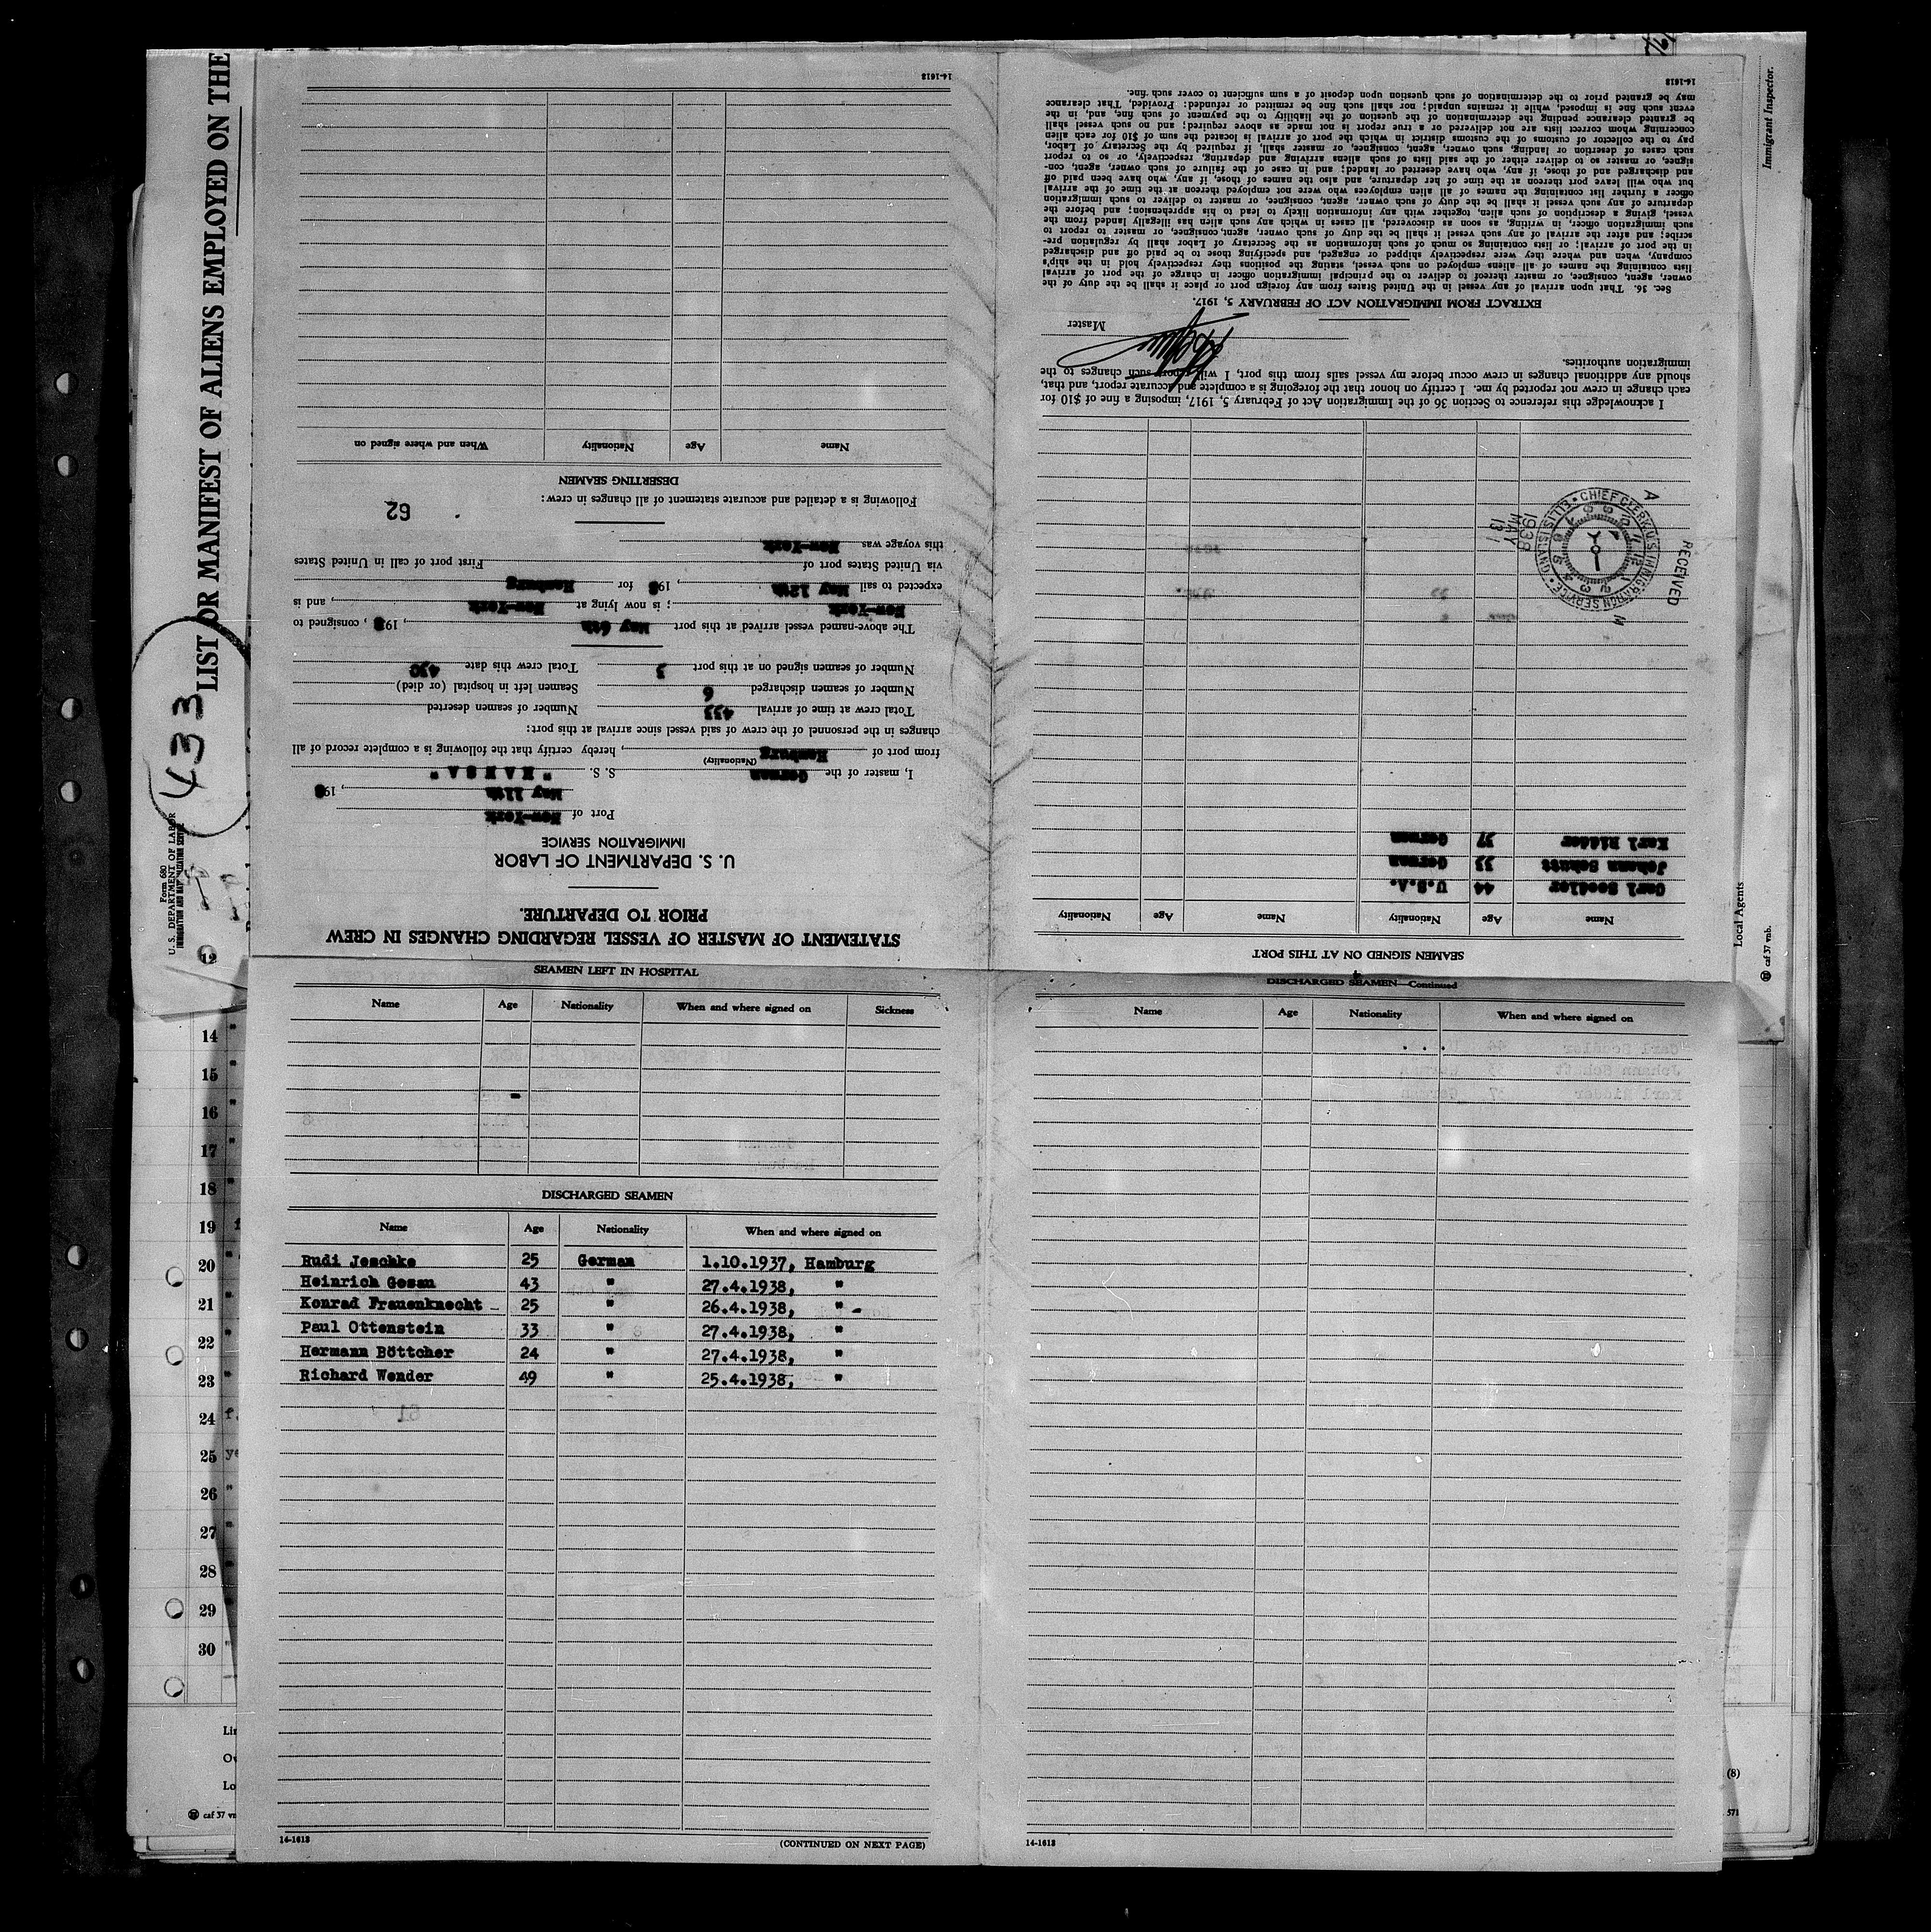 LIST OR MANIFEST OF ALIENS EMPLOYED ON THE
433
Form 680
U. S. DEPARTMENT OF LABOR
IMMIGRATION AND NATURALIZATION SERVICE
STATEMENT OF MASTER OF VESSEL REGARDING CHANGES IN CREW
PRIOR TO DEPARTURE.
U. S. DEPARTMENT OF LABOR
IMMIGRATION SERVICE
Port of New-York
May 11th, 1938
I, master of the German S. S. "HANSA"
(Nationality)
from port of Hamburg, hereby certify that the following is a complete record of all
changes in the personnel of the crew of said vessel since arrival at this port:
Total crew at time of arrival 433 Number of seamen deserted
Number of seamen discharged 6 Seamen left in hospital (or died)
Number of seamen signed on at this port 3 Total crew this date 430
The above-named vessel arrived at this port May 6th, 1938, consigned to
New-York; is now lying at New-York, and is
expected to sail May 12th, 1938 for Hamburg
via United States port of First port of call in United States
this voyage was New-York
62
Following is a detailed and accurate statement of all changes in crew:
DESERTING SEAMEN
Name Age Nationality When and where signed on
14-1613
SEAMEN SIGNED ON AT THIS PORT
Name Age Nationality Name Age Nationality
Carl Seedler 44 U.S.A.
Johann Schutt 33 German
Karl Ridder 37 German
RECEIVED
A M
CHIEF CLERK U.S. IMMIGRATION SERVICE ELLIS ISLAND
1938 MAY 13
I acknowledge this reference to Section 36 of the Immigration Act of February 5, 1917, imposing a fine of $10 for
each change in crew not reported by me. I certify on honor that the foregoing is a complete and accurate report, and that,
should any additional changes in crew occur before my vessel sails from this port, I will report such changes to the
immigration authorities.
Master
EXTRACT FROM IMMIGRATION ACT OF FEBRUARY 5, 1917.
Sec. 36. That upon arrival of any vessel in the United States from any foreign port or place it shall be the duty of the
owner, agent, consignee, or master thereof to deliver to the principal immigration officer in charge of the port of arrival
lists containing the names of all aliens employed on such vessel, stating the positions they respectively hold in the ship's
company, when and where they were respectively shipped or engaged, and specifying those to be paid off and discharged
in the port of arrival; or lists containing so much of such information as the Secretary of Labor shall by regulation pre-
scribe; and after the arrival of any such vessel it shall be the duty of such owner, agent, consignee, or master to report to
such immigration officer, in writing, as soon as discovered, all cases in which any such alien has illegally landed from the
vessel, giving a description of such alien, together with any information likely to lead to his apprehension; and before the
departure of any such vessel it shall be the duty of such owner, agent, consignee, or master to deliver to such immigration
officer a further list containing the names of all alien employees who were not employed thereon at the time of the arrival
but who will leave port thereon at the time of her departure, and also the names of those, if any, who have been paid off
and discharged and of those, if any, who have deserted or landed; and in case of the failure of such owner, agent, con-
signee, or master so to deliver either of the said lists of such aliens arriving and departing, respectively, or so to report
such cases of desertion or landing, such owner, agent, consignee, or master shall, if required by the Secretary of Labor,
pay to the collector of customs of the customs district in which the port of arrival is located the sum of $10 for each alien
concerning whom correct lists are not delivered or a true report is not made as above required; and no such vessel shall
be granted clearance pending the determination of the question of the liability to the payment of such fine, and, in the
event such fine is imposed, while it remains unpaid; nor shall such fine be remitted or refunded: Provided, That clearance
may be granted prior to the determination of such question upon deposit of a sum sufficient to cover such fine.
14-1613
Immigrant Inspector.
Local Agents
caf 37 vnb.
SEAMEN LEFT IN HOSPITAL
Name Age Nationality When and where signed on Sickness
DISCHARGED SEAMEN
Name Age Nationality When and where signed on
Rudi Jeschke 25 German 1.10.1937, Hamburg
Heinrich Gesau 43 " 27.4.1938, "
Konrad Frauenknecht 25 " 26.4.1938, "
Paul Ottenstein 33 " 27.4.1938, "
Hermann Böttcher 24 " 27.4.1938, "
Richard Wender 49 " 25.4.1938, "
14-1613 (CONTINUED ON NEXT PAGE)
DISCHARGED SEAMEN—Continued
Name Age Nationality When and where signed on
14-1613
12
14
15
16
17
18
19
20
21
22
23
24
25
26
27
28
29
30
caf 37
(8)
571